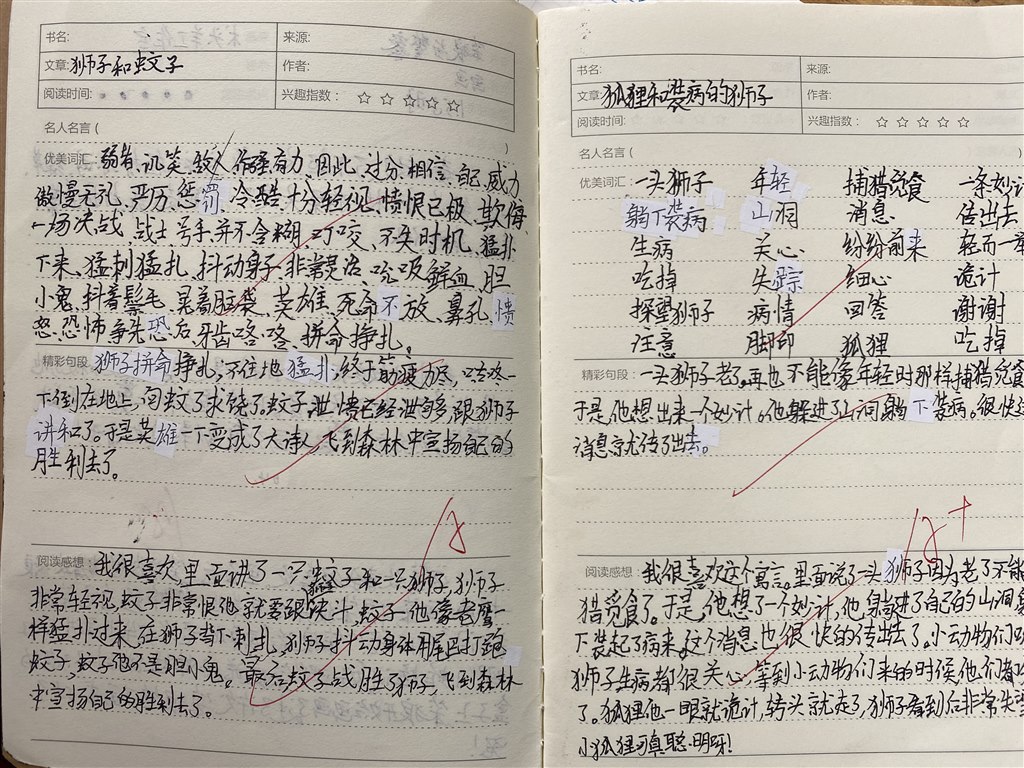 书名:
来源:
文章:狮子和蚊子
作者:
阅读时间:
兴趣指数: ☆ ☆ ☆ ☆ ☆
名人名言 ( )
优美词汇: 弱者、讥笑、敌人、俑强有力、因此、过分、相信、自己、威力
傲慢无礼、严厉、惩罚、冷酷、十分轻视、愤恨已极、欺侮
一场决战、战士、号手、并不含糊、叮咬、不失时机、猛扑
下来、猛刺猛扎、抖动身子、非常英语、吮吸鲜血、胆
小鬼、抖着鬃毛、晃着脑袋、英雄、死命不放、鼻孔、愤
怒、恐怖、争先恐后、牙齿咯咯、拼命挣扎。
精彩句段: 狮子拼命挣扎,不住地猛扑,终于筋疲力尽,咯咚一
下倒在地上,向蚊子求饶了。蚊子泄愤已经泄够,跟狮子
讲和了。于是英雄一下变成了大诗人飞到森林中宣扬自己的
胜利去了。
阅读感想: 我很喜欢里面讲了一只蚊子和一只狮子,狮子
非常轻视,蚊子非常恨他就要跟决斗,蚊子他像老鹰一
样猛扑过来,在狮子当下刺扎,狮子抖动身体用尾巴打跑
蚊子,蚊子他不是胆小鬼。最后蚊子战胜了狮子,飞到森林
中宣扬自己的胜利去了。
书名:
来源:
文章:狐狸和装病的狮子
作者:
阅读时间:
兴趣指数: ☆ ☆ ☆ ☆ ☆
名人名言 (
优美词汇: 一头狮子 年轻 捕猎觅食 一条妙计
躺下装病 山洞 消息 传出去
生病 关心 纷纷前来 轻而一举
吃掉 失踪 细心 诡计
探望狮子 病情 回答 谢谢
注意 脚印 狐狸 吃掉
精彩句段: 一头狮子老了。再也不能像年轻时那样捕猎觅食
于是,他想出来一个妙计。他躲进了山洞躺下装病。很快这
消息就传了出去。
阅读感想: 我很喜欢这个寓言。里面说了一头狮子因为老了不能
猎觅食了。于是,他想了一个妙计,他躺进了自己的山洞
下装起了病来。这个消息也很快的传出去了。小动物们
狮子生病都很关心,等到小动物们来的时候他们都
了。狐狸他一眼就诡计,转头就走了,狮子看到后非常失望
小狐狸可真聪明呀!